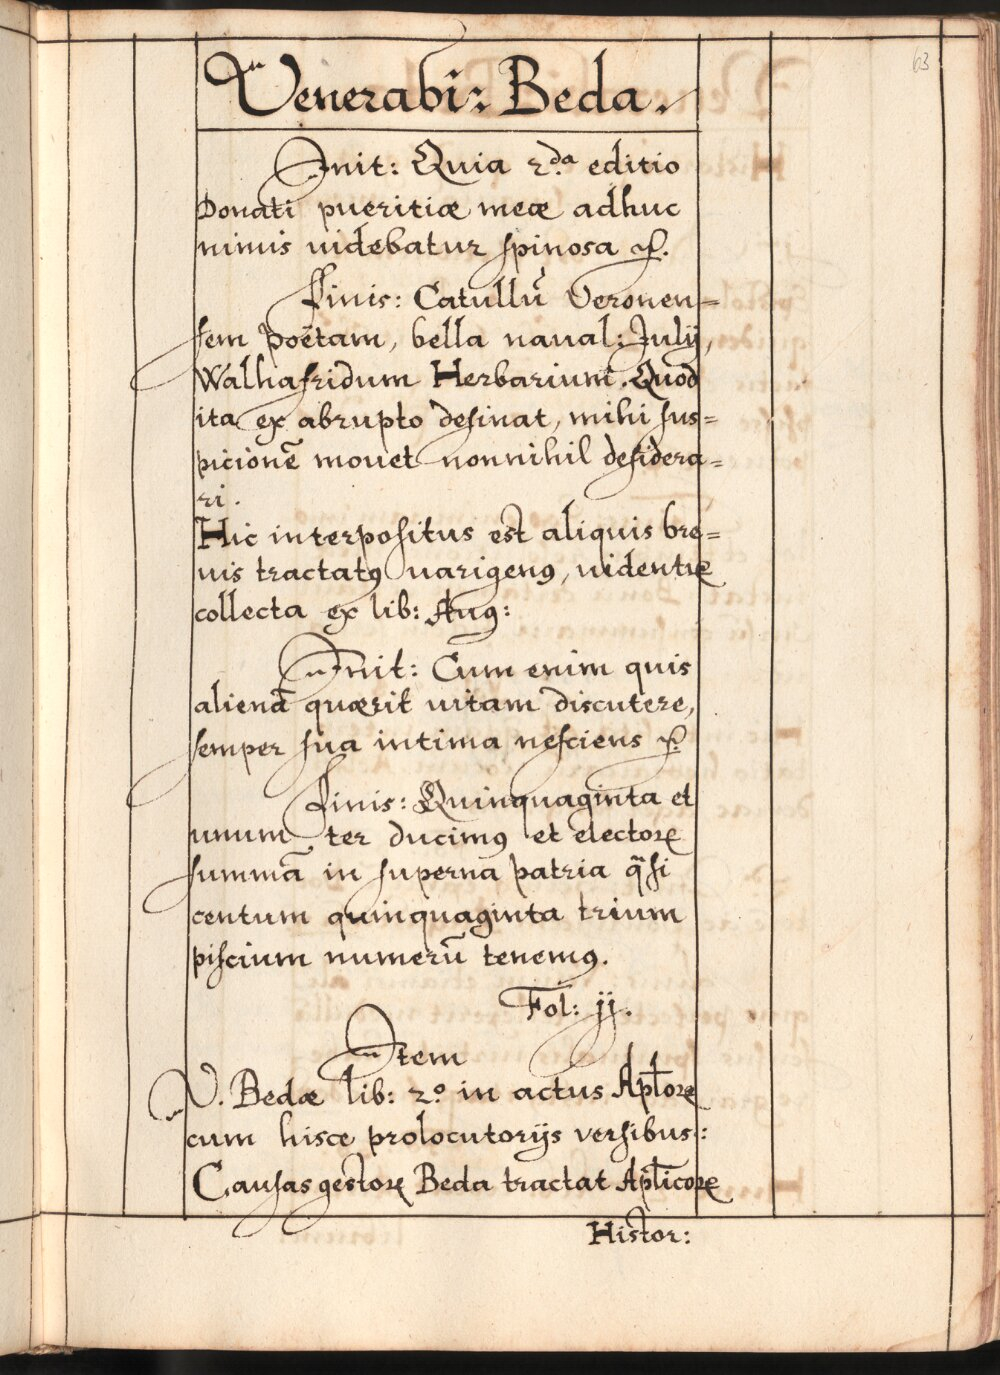 63
Venerabi: Beda.
Init: Quia 2.da editio
Donati pueritiæ meæ adhuc
nimis uidebatur spinosa &.
Finis: Catullū Veronen=
sem poëtam, bella naual: Julij,
Walhafridum Herbarium. Quod
ita ex abrupto desinat, mihi sus=
picionē mouet nonnihil desidera=
ri.
Hic interpositus est aliquis bre=
uis tractatꝰ uarigenꝰ, uidentur
collecta ex lib: Aug:
Init: Cum enim quis
alienā quærit uitam discutere,
semper sua intima nesciens &.
Finis: Quinquaginta et
unum ter ducimꝰ et electoꝝ
summā in superna patria q̄si
centum quinquaginta trium
piscium numerū tenemꝰ.
Fol: jj.
Item
V. Bedæ lib: 2.o in actus Apl̄oꝝ
cum hisce prolocutorijs versibus:
Causas gestoꝝ Beda tractat Apl̄icoꝝ
Histor: